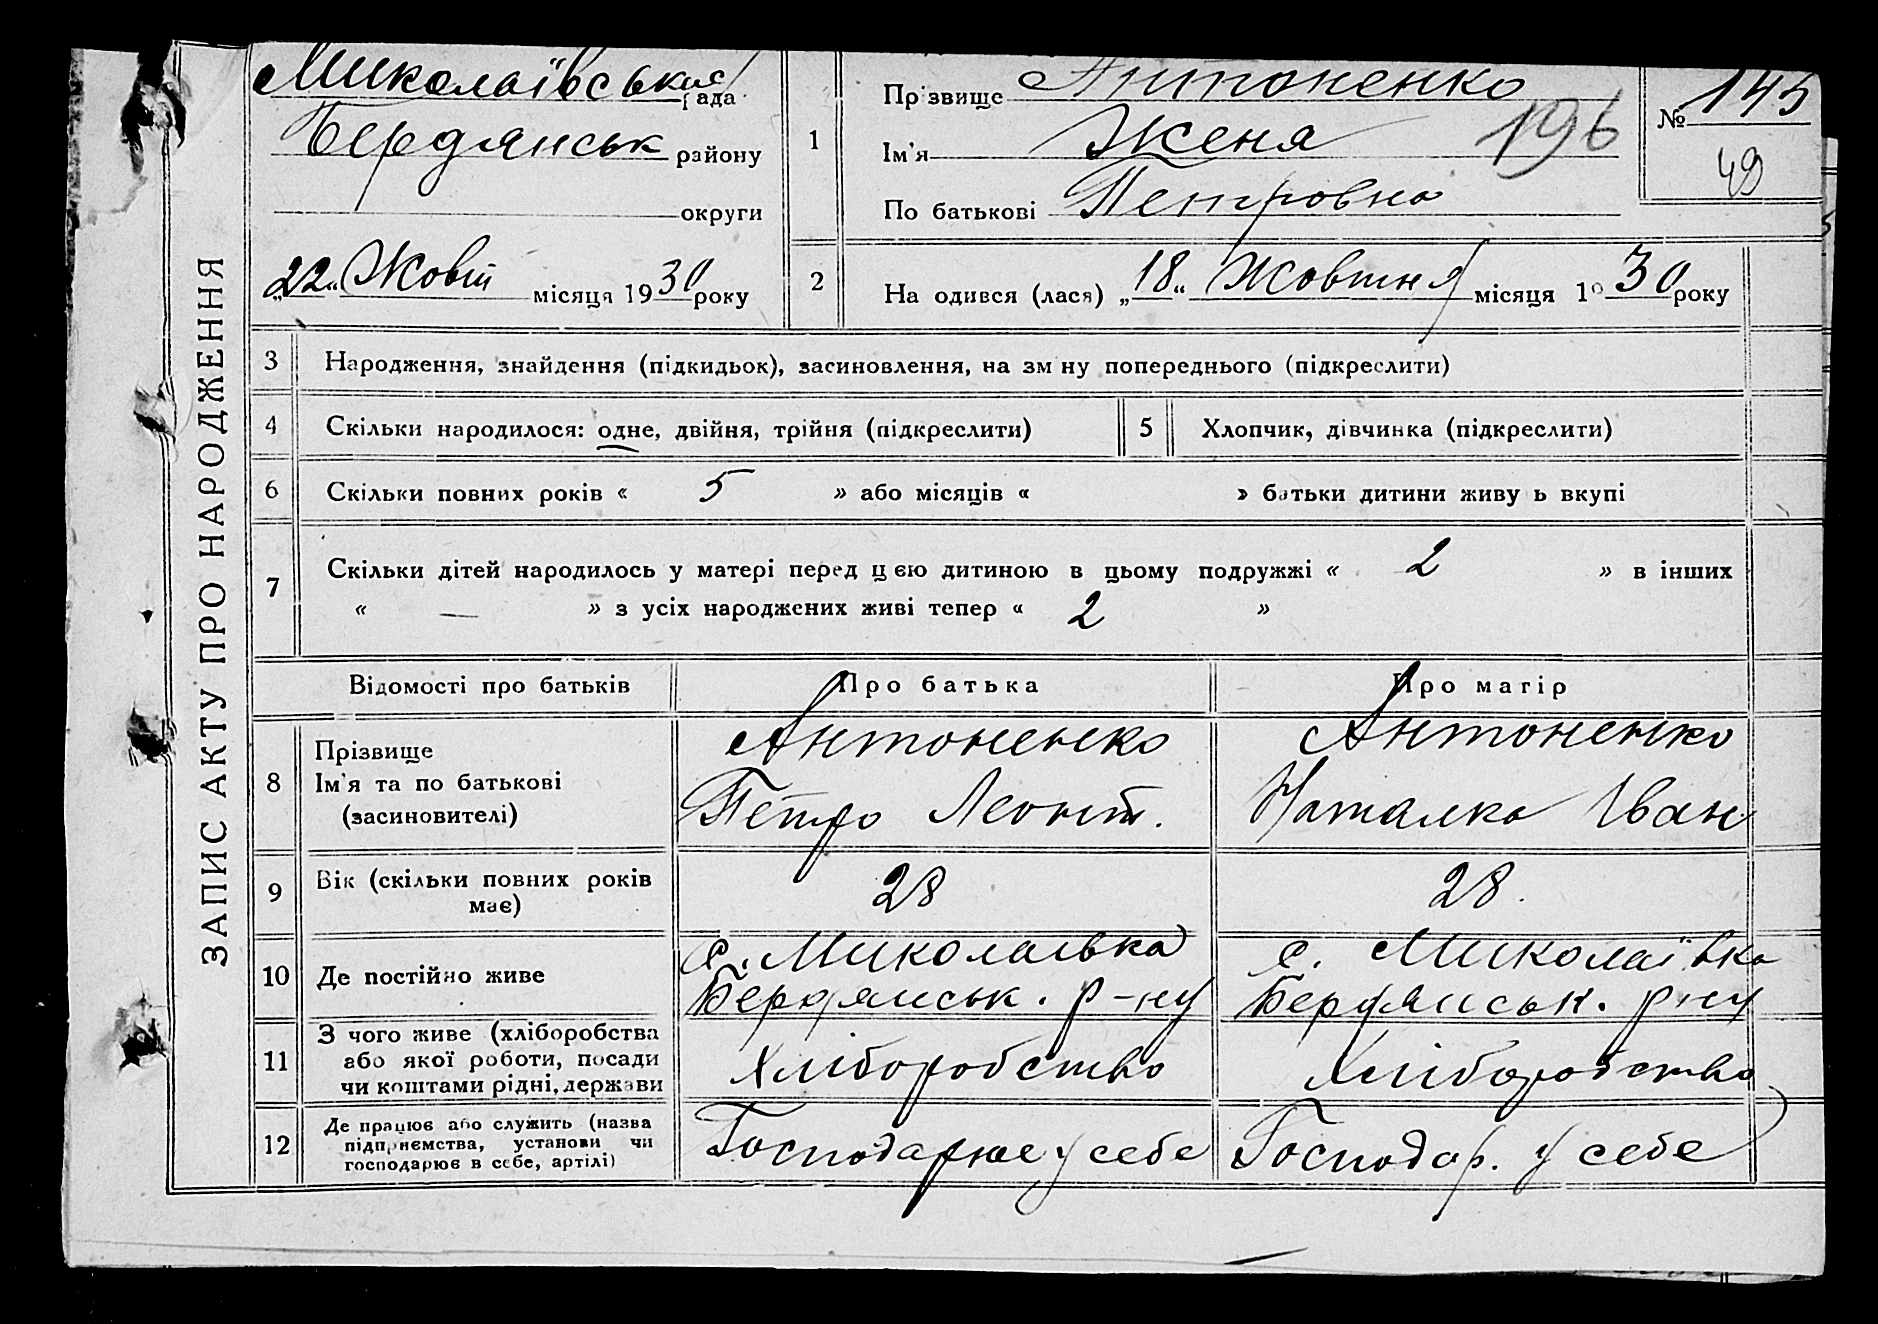 ЗАПИС АКТУ ПРО НАРОДЖЕННЯ
Миколаївська рада
Бердянськ району
округи
„22“ Жовт місяця 1930 року
1
Прізвище Антоненко
Ім'я Женя
По батькові Петровна
196
№ 145
49
2
На одився (лася) „18“ Жовтня місяця 1930 року
3 Народження, знайдення (підкидьок), засиновлення, на зм ну попереднього (підкреслити)
4 Скільки народилося: одне, двійня, трійня (підкреслити)
5 Хлопчик, дівчинка (підкреслити)
6 Скільки повних років « 5 » або місяців « » батьки дитини живу ь вкупі
7 Скільки дітей народилось у матері перед цією дитиною в цьому подружжі « 2 » в інших
« — » з усіх народжених живі тепер « 2 »
Відомості про батьків Про батька Про матір
8 Прізвище
Ім'я та по батькові
(засиновителі)
Антоненко
Петро Леонт.
Антоненко
Наталка Іван
9 Вік (скільки повних років
має)
28
28.
10 Де постійно живе
с. Миколаівка
Бердянськ. р-ну
с. Миколаївка
Бердянськ. рну
11 З чого живе (хліборобства
або якої роботи, посади
чи коштами рідні, держави
Хліборобство
Хліборобство
12 Де працює або служить (назва
підприємства, установи чи
господарює в себе, артілі)
Господарює у себе
Господар. у себе